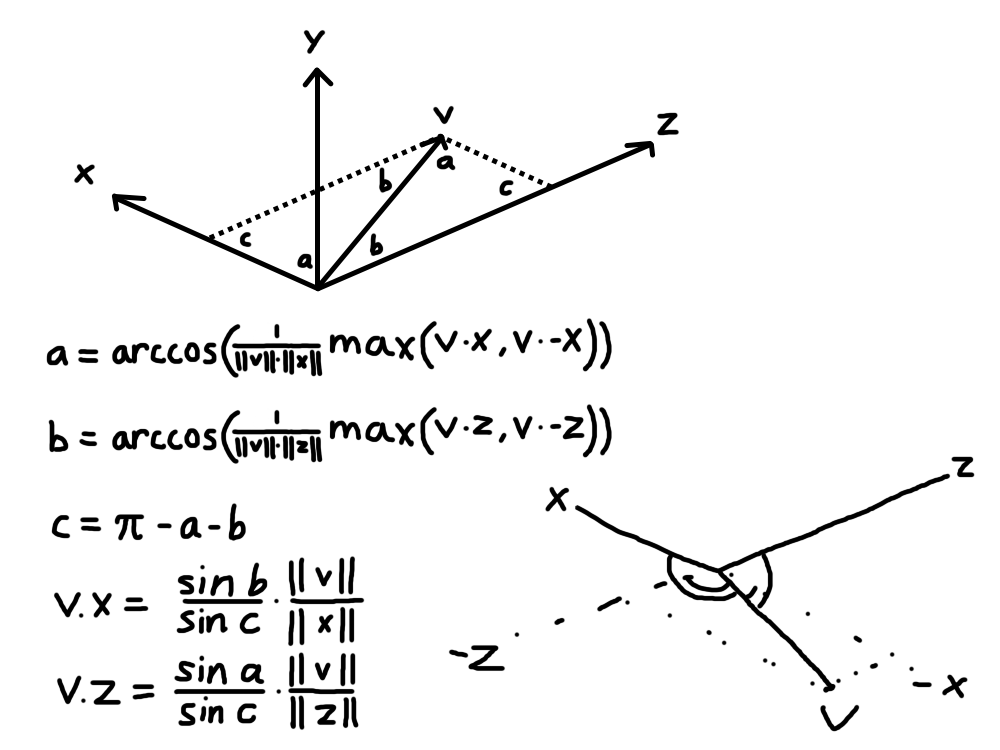 Y
V
Z
X
a
b
c
c
b
a
a = arccos(1/(||v||·||x||) max(v·x, v·-x))
b = arccos(1/(||v||·||z||) max(v·z, v·-z))
c = π - a - b
v.x = sin b / sin c · ||v|| / ||x||
v.z = sin a / sin c · ||v|| / ||z||
X
Z
-Z
-X
V